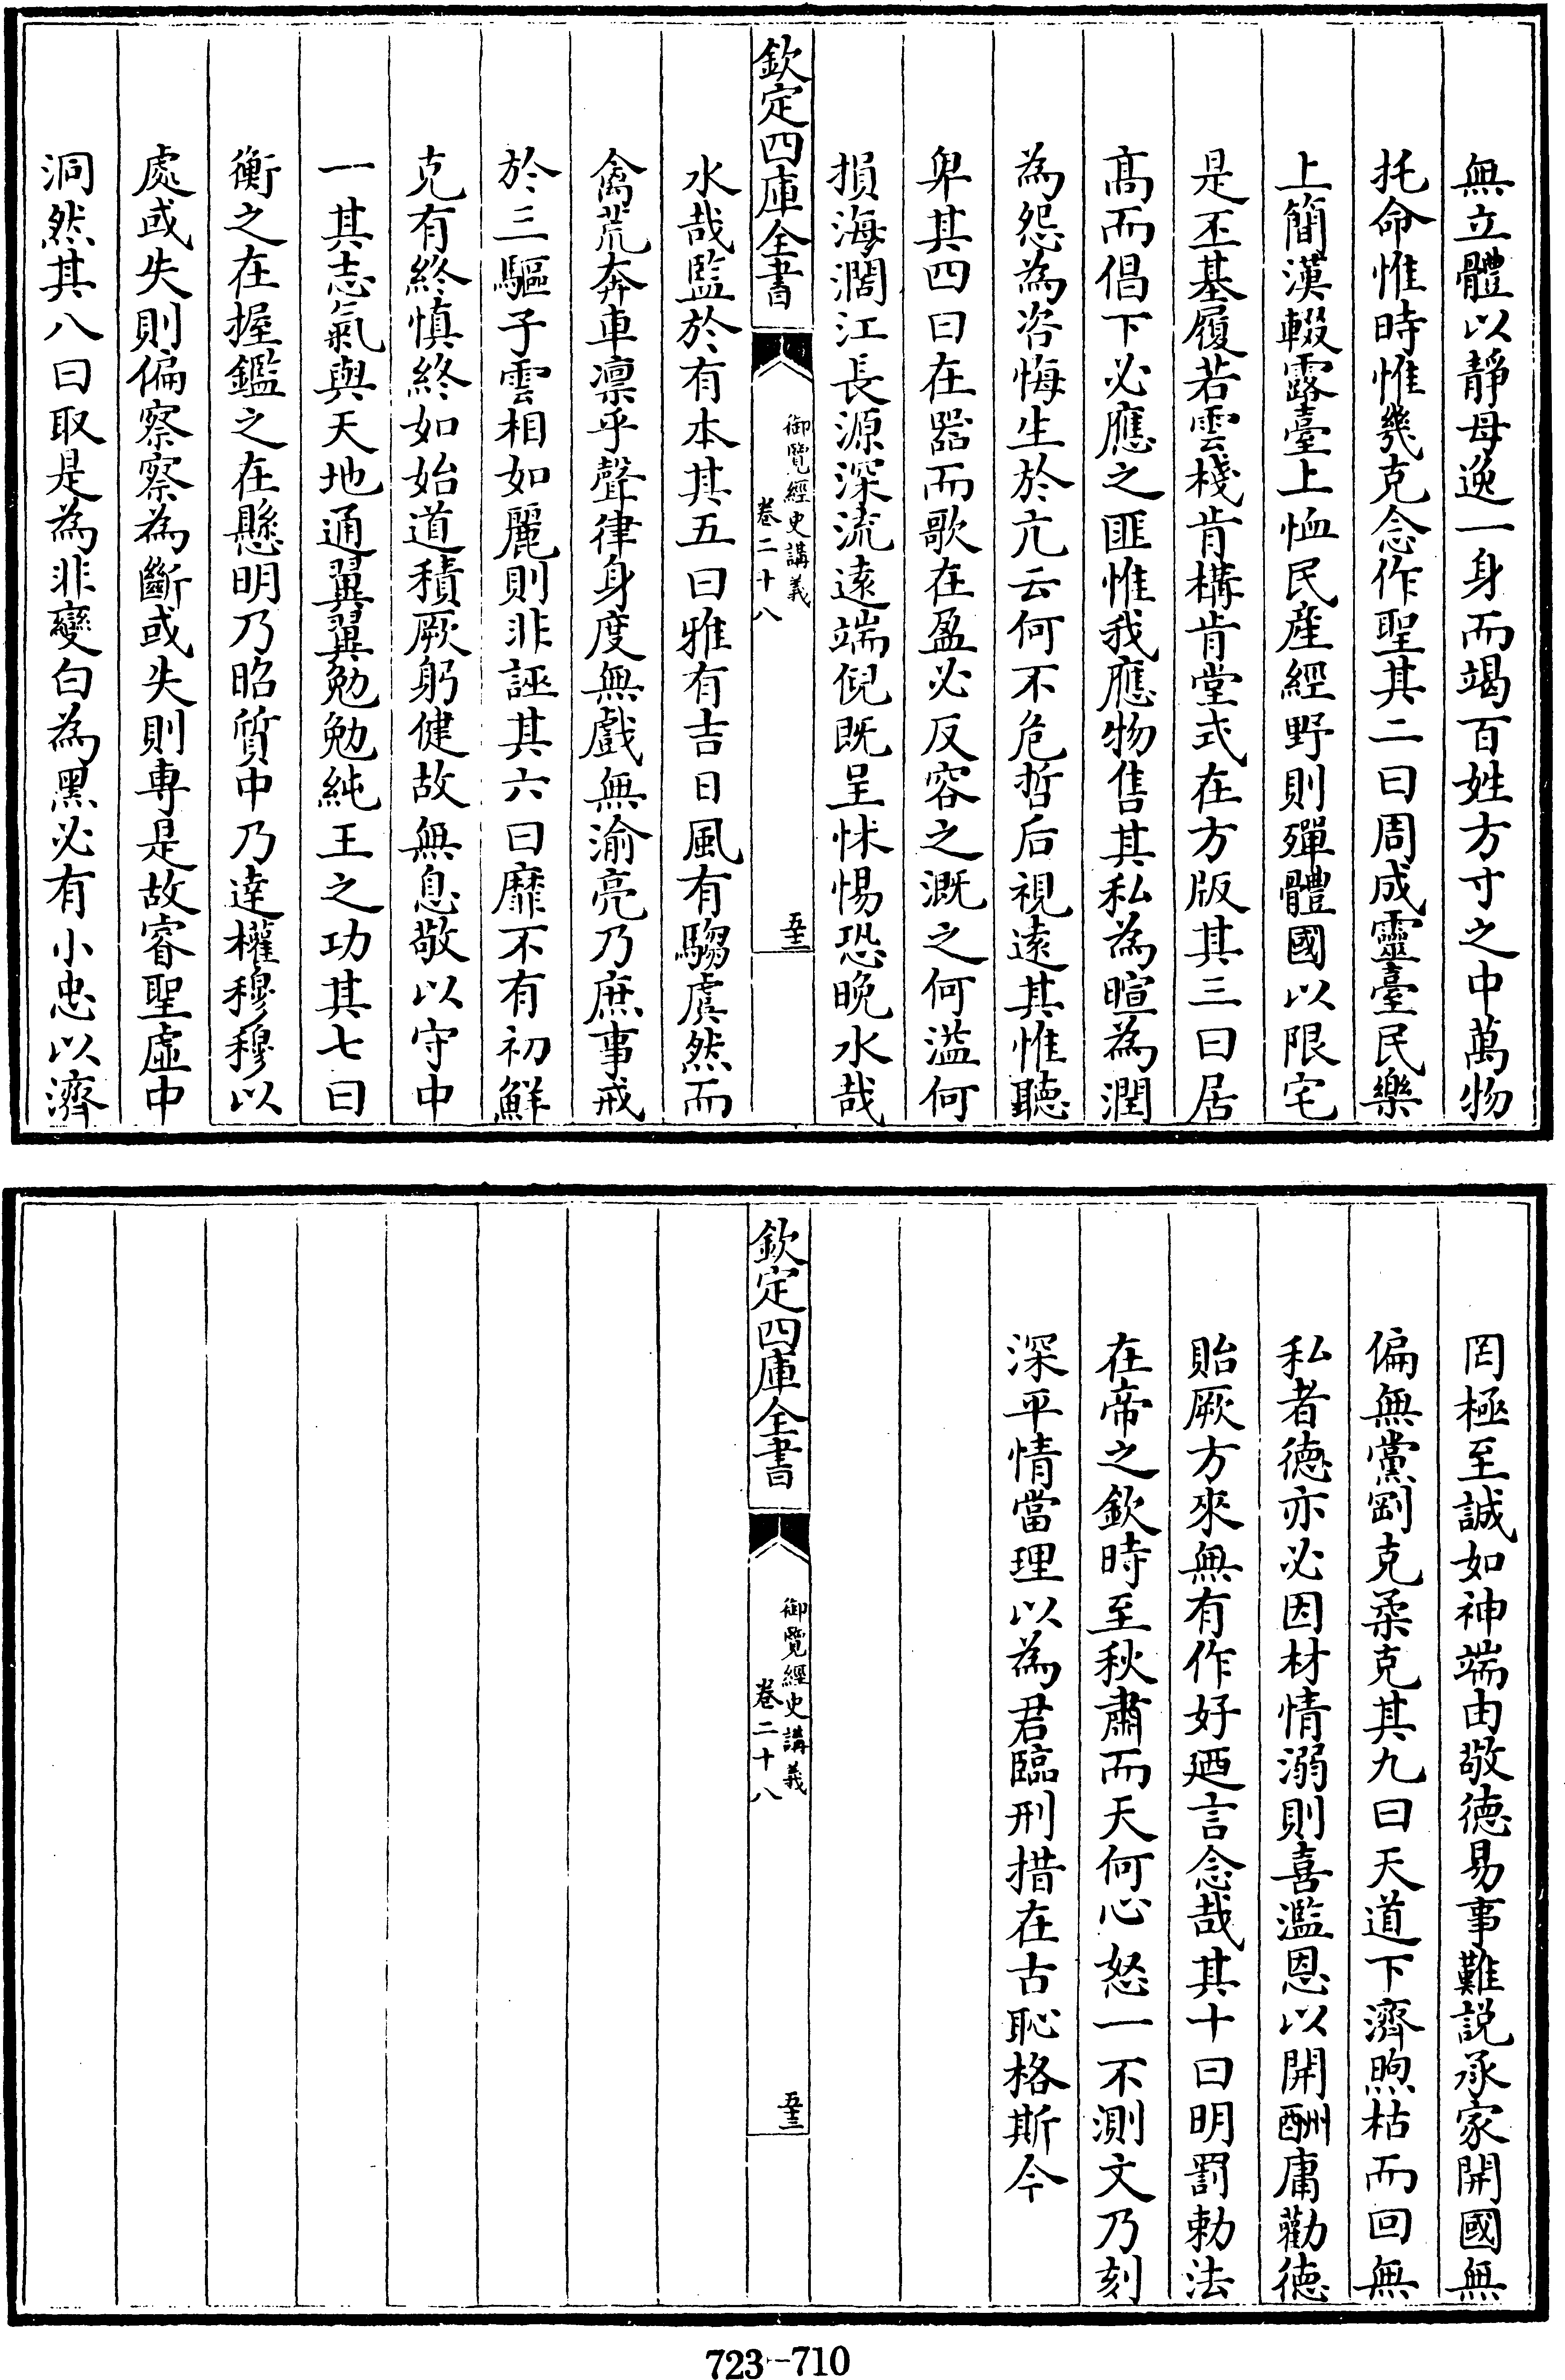 無立體以靜毋逸一身而竭百姓方寸之中萬物
托命惟時惟幾克念作聖其二曰周成靈臺民樂
上簡漢輟露臺上恤民產經野則殫體國以限宅
是丕基履若雲棧肯構肯堂式在方版其三曰居
高而倡下必應之匪惟我應物售其私為暄為潤
為怨為咨悔生於亢云何不危哲后視遠其惟聽
卑其四曰在器而歌在盈必反容之溉之何溢何
損海濶江長源深流遠端倪既呈怵惕恐晚水哉
欽定四庫全書
御覽經史講義
卷二十八
五十二
水哉監於有本其五曰雅有吉日風有騶虞然而
禽荒奔車凛乎聲律身度無戲無渝亮乃庶事戒
於三驅子雲相如麗則非誣其六曰靡不有初鮮
克有終慎終如始道積厥躬健故無息敬以守中
一其志氣與天地通翼翼勉勉純王之功其七曰
衡之在握鑑之在懸明乃昭質中乃達權穆穆以
處或失則偏察察為斷或失則專是故睿聖虛中
洞然其八曰取是為非變白為黑必有小忠以濟
罔極至誠如神端由敬德易事難說承家開國無
偏無黨剛克柔克其九曰天道下濟煦枯而回無
私者德亦必因材情溺則喜濫恩以開酬庸勸德
貽厥方來無有作好廼言念哉其十曰明罰勅法
在帝之欽時至秋肅而天何心怒一不測文乃刻
深平情當理以為君臨刑措在古恥格斯今
欽定四庫全書
御覽經史講義
卷二十八
五十三
723-710